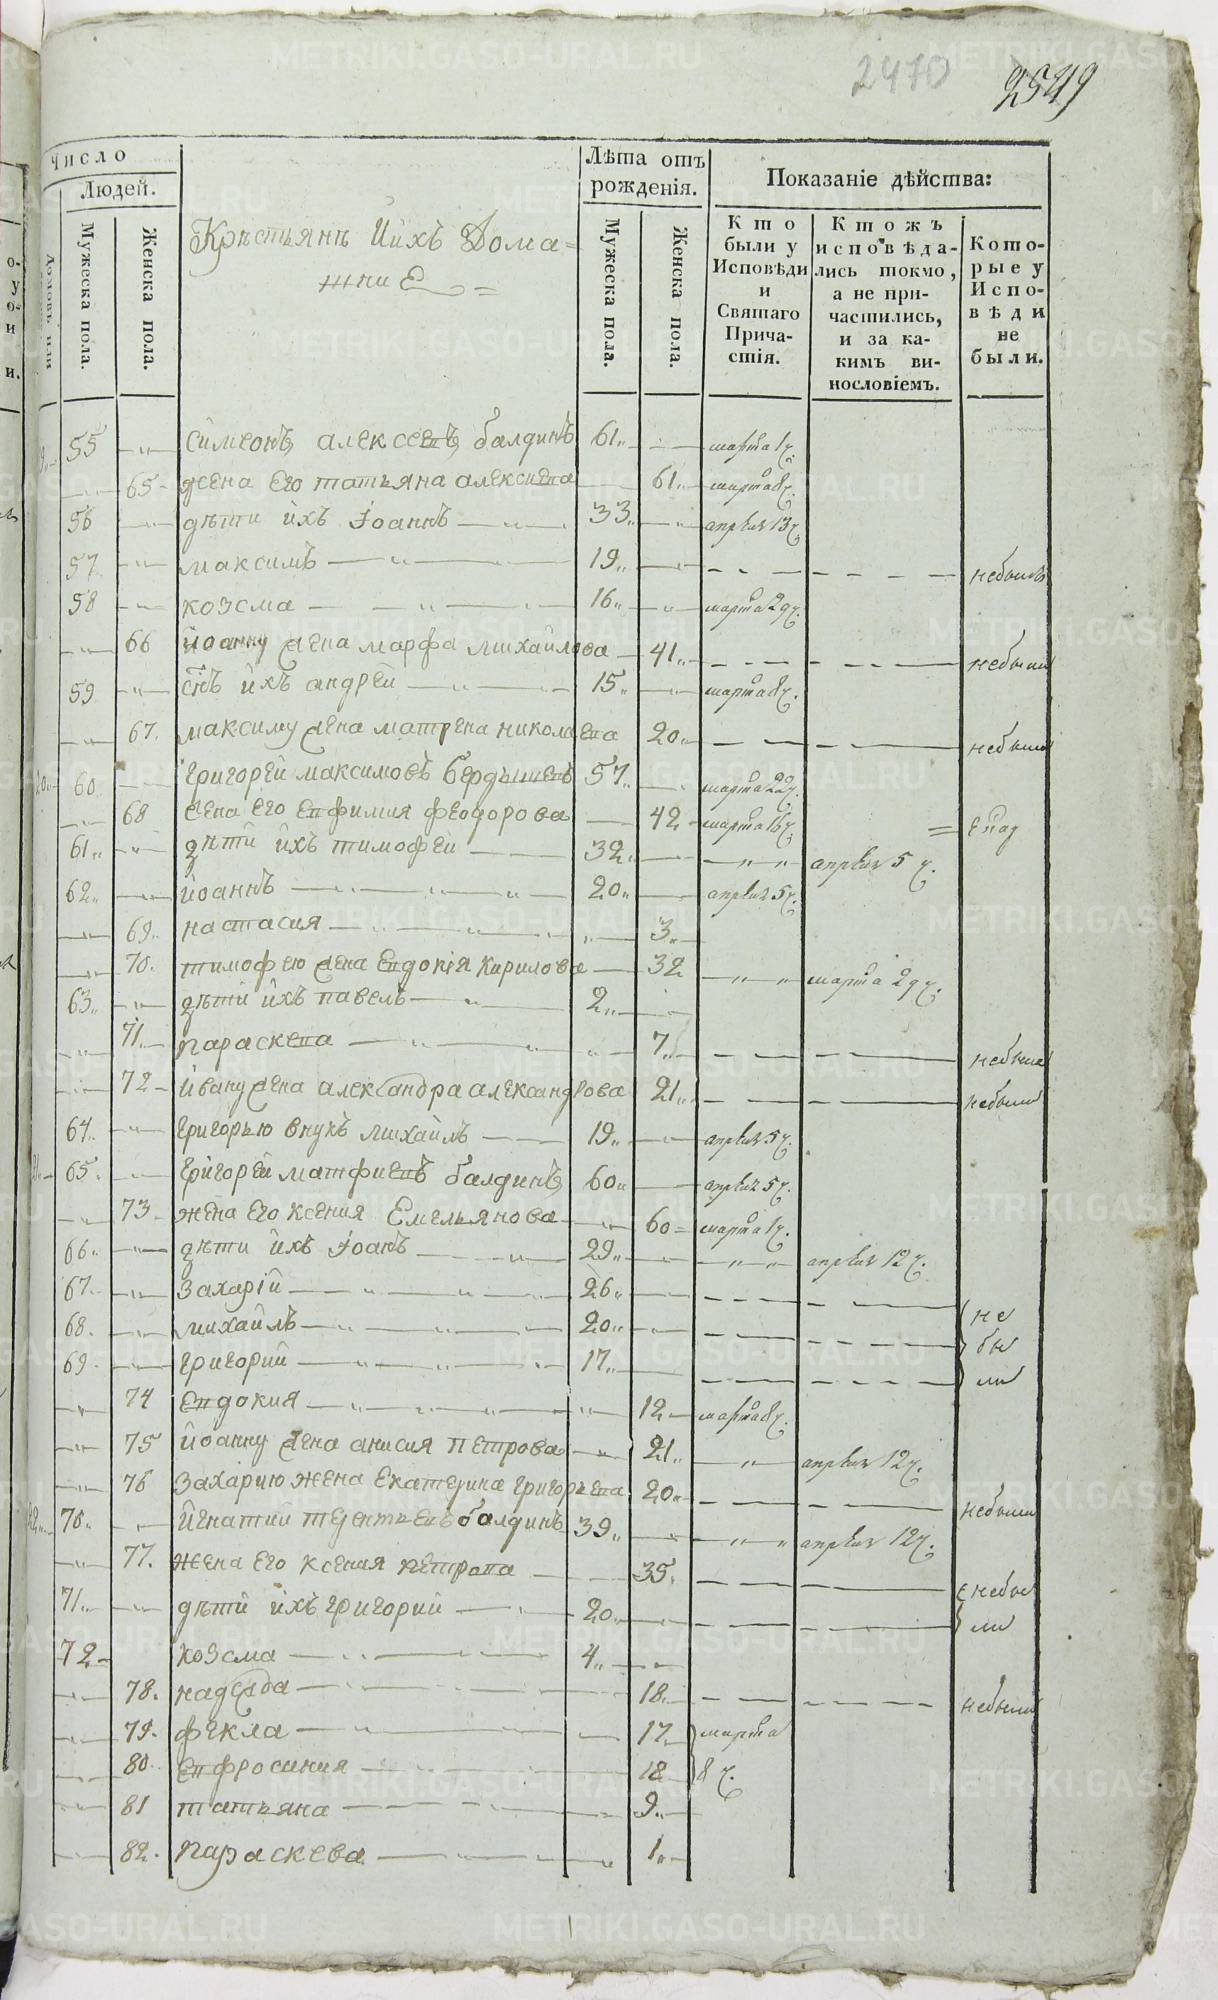 2470
2549
Число
Людей.
Мужеска пола.
Женска пола.
Крестьянъ Ийхъ Дома=
шни Е =
Лѣта отъ
рожденія.
Мужеска пола.
Женска пола.
Показаніе дѣйства:
Кто
были у
Исповѣди
и
Святаго
Прича-
стія.
Ктожъ
исповѣда-
лись токмо,
а не при-
частились,
и за ка-
кимъ ви-
нословіемъ.
Кото-
рые у
Испо-
вѣди
не
были.
55 симеонъ алексеевъ балдинъ 61 марта 1 ч.
65 жена его татьяна алексиева 61 марта 8 ч.
56 дѣти ихъ іоаннъ 33 апреля 13 ч.
57 максимъ 19 небылъ
58 козсма 16 марта 29 ч.
66 иоанну жена марфа михайлова 41 небыли
59 снъ ихъ андрей 15 марта 8 ч.
67. максиму жена матрена николаева 20 небыли
60 григорей максимовъ бердышевъ 57 марта 22 ч.
68 жена его евфимия феодорова 42 марта 16 ч.
61 дѣти ихъ тимофей 32 апреля 5 ч.
62 иоаннъ 20 апреля 5 ч.
69 настасия 3
70. тимофею жена евдокія кирилова 32 марта 29 ч.
63 дѣти ихъ павелъ 2
71 параскева 7 небыла
72 ивану жена александра александрова 21 небыли
64 григорью внукъ михаилъ 19 апреля 5 ч.
65 григорей матфиевъ балдинъ 60 апреля 5 ч.
73 жена его ксения Емельянова 60 марта 1 ч.
66 дѣти ихъ іоанъ 29 апреля 12 ч.
67 захарій 26 не
68. михайлъ 20 бы
69 григорий 17 ли
74 евдокия 12 марта 8 ч.
75 иоанну жена анисия петрова 21 апреля 12 ч.
76 захарию жена екатерина григорьева 20 небыли
70. игнатий терентьевъ балдинъ 39 апреля 12 ч.
77. жена его ксения петрова 35 небы
71 дѣти ихъ григорий 20 ли
72 козсма 4
78. надежда 18 небыли
79. фекла 17 марта
80 евфросиния 12 8 ч.
81 татьяна 9
82. параскева 1